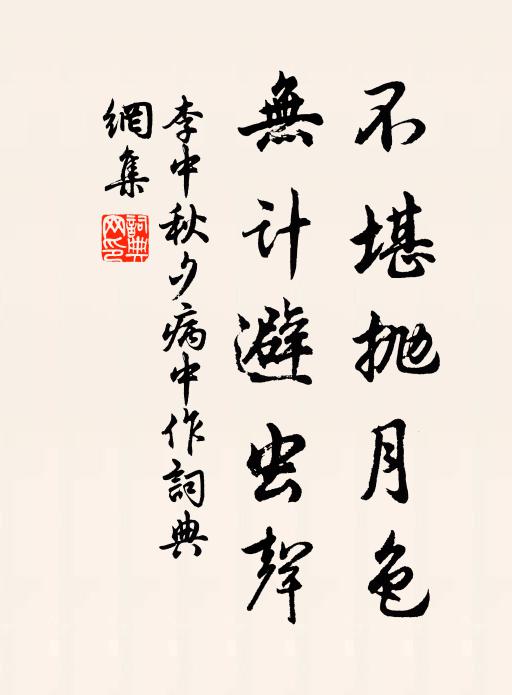 不堪抛月色
無计避虫聲
李中秋夕病中作詞典
網集
詞典
网印